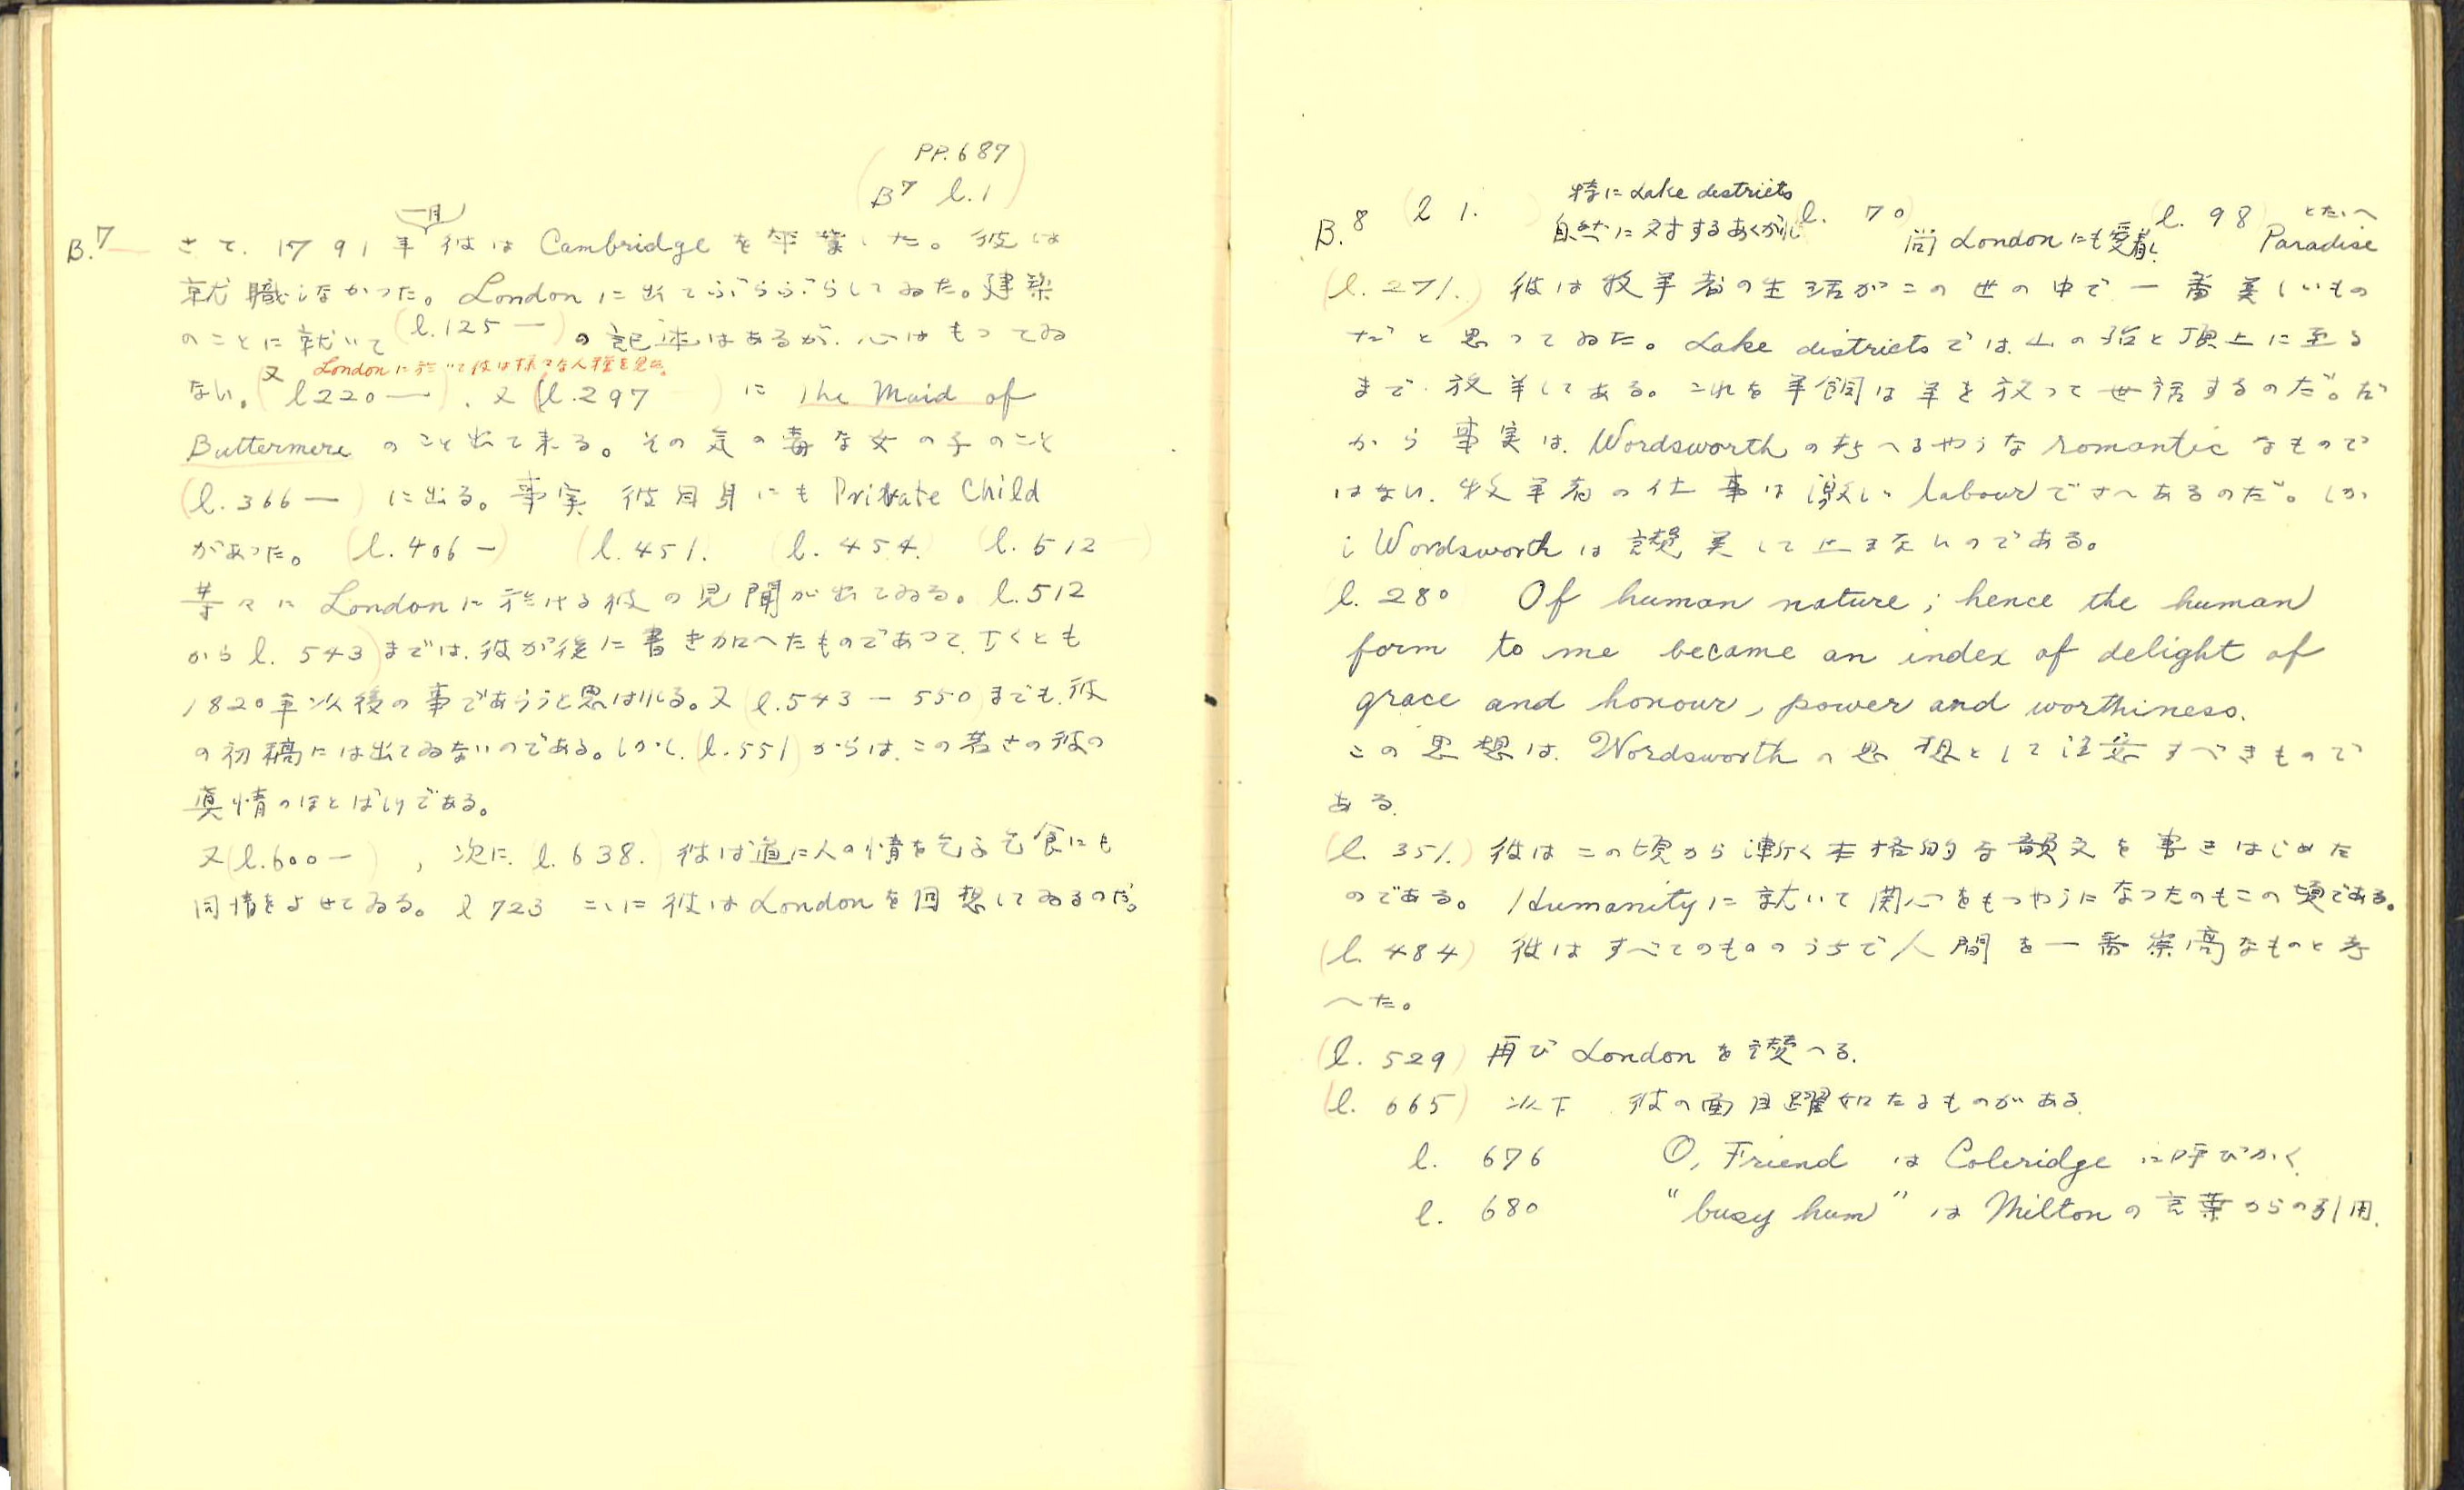 PP. 687
B7 l. 1
一月
B.7 — さて、1791年彼は Cambridge を卒業した。彼は
就職しなかった。London に出てぶらぶらしてゐた。建築
のことに就いて (l.125 —) の記述はあるが、心はもってゐ
London に於いて彼は様々な人種を見た。
ない。又 (l 220 —)、又 (l. 297 ) に The Maid of
Buttermere のこと出て来る。その気の毒な女の子のこと
(l. 366 — ) に出る。事実 彼自身にも Private Child
があった。 (l. 406 —) (l. 451. (l. 454.) (l. 512 —)
等々に London に於ける彼の見聞が出てゐる。l. 512
から l. 543) までは、彼が後に書き加へたものであって、すくとも
1820年以後の事であらうと思はれる。又 (l. 543 — 550) までも、彼
の初稿には出てゐないのである。しかし、(l. 551) からは、この若さの彼の
真情のほとばしりである。
又 (l. 600 — ) , 次に (l. 638.) 彼は道に人の情を乞ふ乞食にも
同情をよせてゐる。 l 723 こゝに彼は London を回想してゐるのだ。
特に Lake districts
B.8 (l 1. ) 自然に対するあくがれ (l. 70) 尚 London にも愛着し (l. 98) とたゝへ Paradise
(l. 271.) 彼は牧羊者の生活がこの世の中で一番美しいもの
だと思ってゐた。Lake districts では、山の殆と頂上に至る
まで、放羊してある。これを羊飼は羊を放って世話するのだ。だ
から事実は、Wordsworth の考へるやうな romantic なもので
はない、牧羊者の仕事は激しい labour でさへあるのだ。しか
し Wordsworth は讃美して止まないのである。
l. 280 Of human nature ; hence the human
form to me became an index of delight of
grace and honour, power and worthiness.
この思想は、Wordsworth の思想として注意すべきもので
ある。
(l. 351.) 彼はこの頃から漸く本格的な韻文を書きはじめた
のである。 Humanity に就いて関心をもつやうになったのもこの頃である。
(l. 484) 彼はすべてのもののうちで人間を一番崇高なものと考
へた。
(l. 529) 再び London を讃へる.
(l. 665) 以下 彼の面目躍如たるものがある.
l. 676 O, Friend は Coleridge に呼びかく
l. 680 "busy hum" は Milton の言葉からの引用.